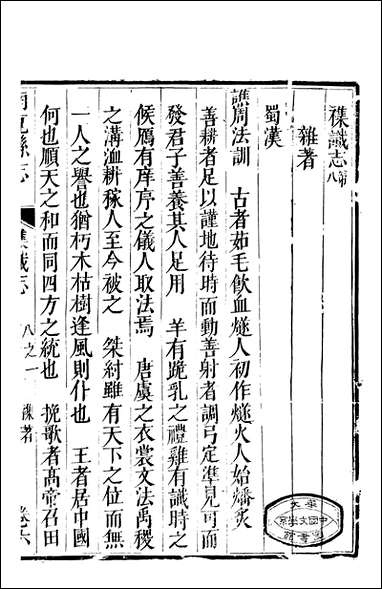 襍識志第八
雜著
蜀漢
譙周法訓　古者茹毛飲血燧人初作燧火人始燔炙
善耕者足以謹地待時而動善射者調弓定準見可而
發君子善養其人足用　羊有跪乳之禮雞有識時之
候鴈有庠序之儀人取法焉　唐虞之衣裳文法禹稷
之溝洫耕稼人至今被之　桀紂雖有天下之位而無
一人之譽也猶朽木枯樹逢風則仆也　王者居中國
何也順天之和而同四方之統也　挽歌者高帝召田
縣志　襍識志　八之一　襍著　卷六
大學
中國文學系
圖書館